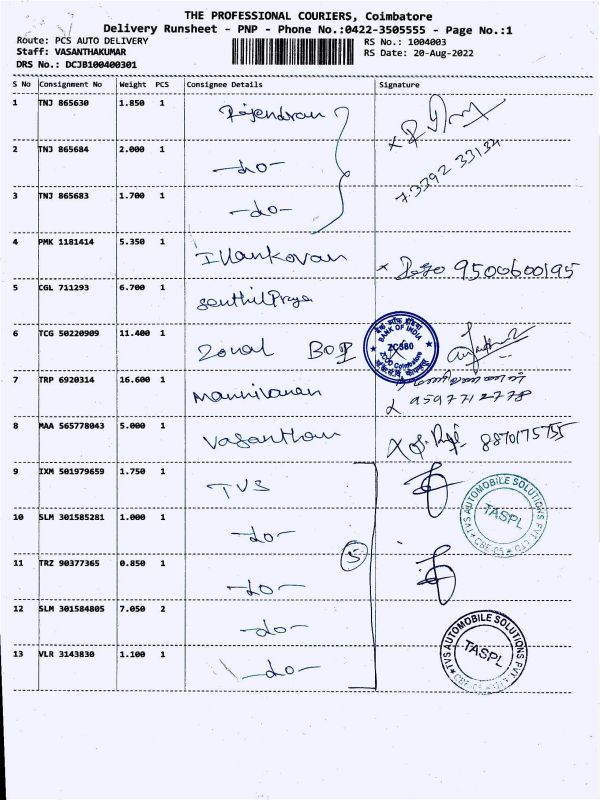 THE PROFESSIONAL COURIERS, Coimbatore
Delivery Runsheet - PNP - Phone No.:0422-3505555 - Page No.:1
Route: PCS AUTO DELIVERY RS No.: 1004003
Staff: VASANTHAKUMAR RS Date: 20-Aug-2022
DRS No.: DCJB100400301
S No Consignment No Weight PCS Consignee Details Signature
1 TNJ 865630 1.850 1 Rajendran
2 TNJ 865684 2.000 1 -do-
3 TNJ 865683 1.700 1 -do-
4 PMK 1181414 5.350 1 Illankovan 9500600195
5 CGL 711293 6.700 1 SenthilPriya
6 TCG 50220909 11.400 1 Zonal BOI
BANK OF INDIA
ZC580
ZO/ZO Coimbatore
7 TRP 6920314 16.600 1 Mannivanan 9597712778
8 MAA 565778043 5.000 1 Vasantham 8870175755
9 IXM 501979659 1.750 1 TVS
TVS AUTOMOBILE SOLUTIONS PVT LTD
TASPL
CBE-05
10 SLM 301585281 1.000 1 -do-
5
11 TRZ 90377365 0.850 1 -do-
12 SLM 301584805 7.050 2 -do-
TVS AUTOMOBILE SOLUTIONS PVT LTD
TASPL
13 VLR 3143830 1.100 1 -do-